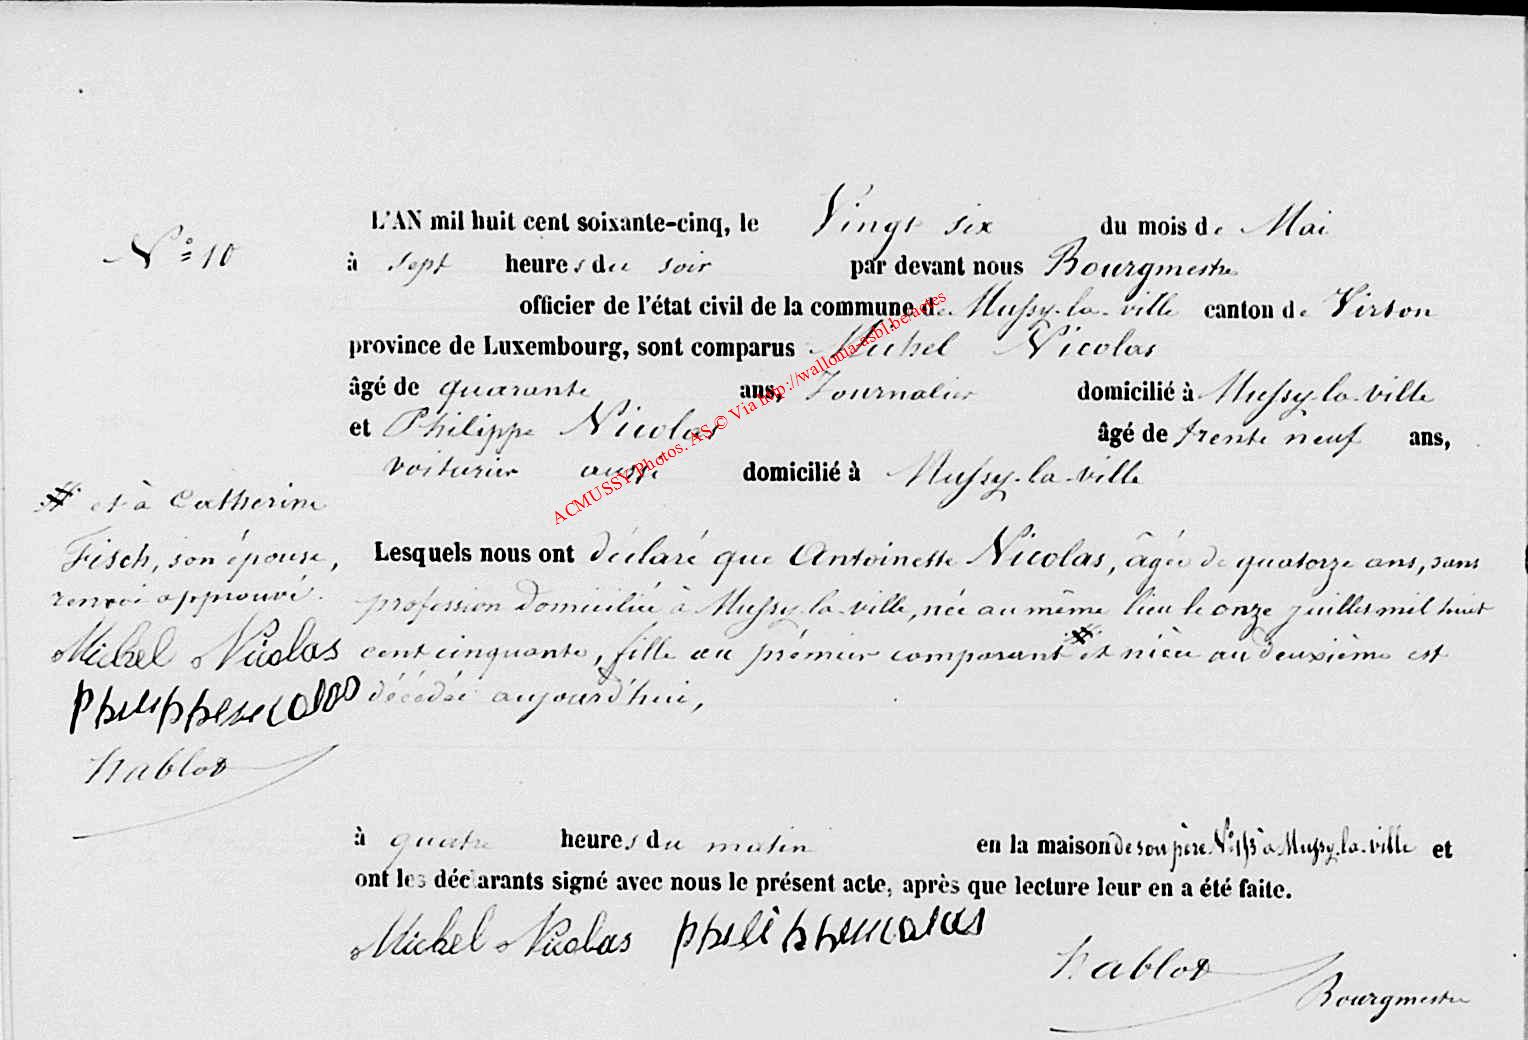 N° 10
L'AN mil huit cent soixante-cinq, le Vingt six du mois de Mai
à sept heures du soir par devant nous Bourgmestre
officier de l'état civil de la commune de Mussy-la-ville canton de Virton
province de Luxembourg, sont comparus Michel Nicolas
âgé de quarante ans, Journalier domicilié à Mussy-la-ville
et Philippe Nicolas âgé de trente neuf ans,
voiturier aussi domicilié à Mussy-la-ville
Lesquels nous ont déclaré que Antoinette Nicolas, âgée de quatorze ans, sans
profession domiciliée à Mussy-la-ville, née au même lieu le onze juillet mil huit
cent cinquante, fille au prémier comparant # et nièce au deuxième est
décédée aujourd'hui,
# et à Catherine
Fisch, son épouse,
renvoi approuvé.
Michel Nicolas
philippenicolas
Hablot
à quatre heures du matin en la maison de son père N° à Mussy-la-ville et
ont les déclarants signé avec nous le présent acte, après que lecture leur en a été faite.
Michel Nicolas philippenicolas
Hablot
Bourgmestre
ACMUSSY Photos. AS © Via http://wallonia-asbl.be/actes